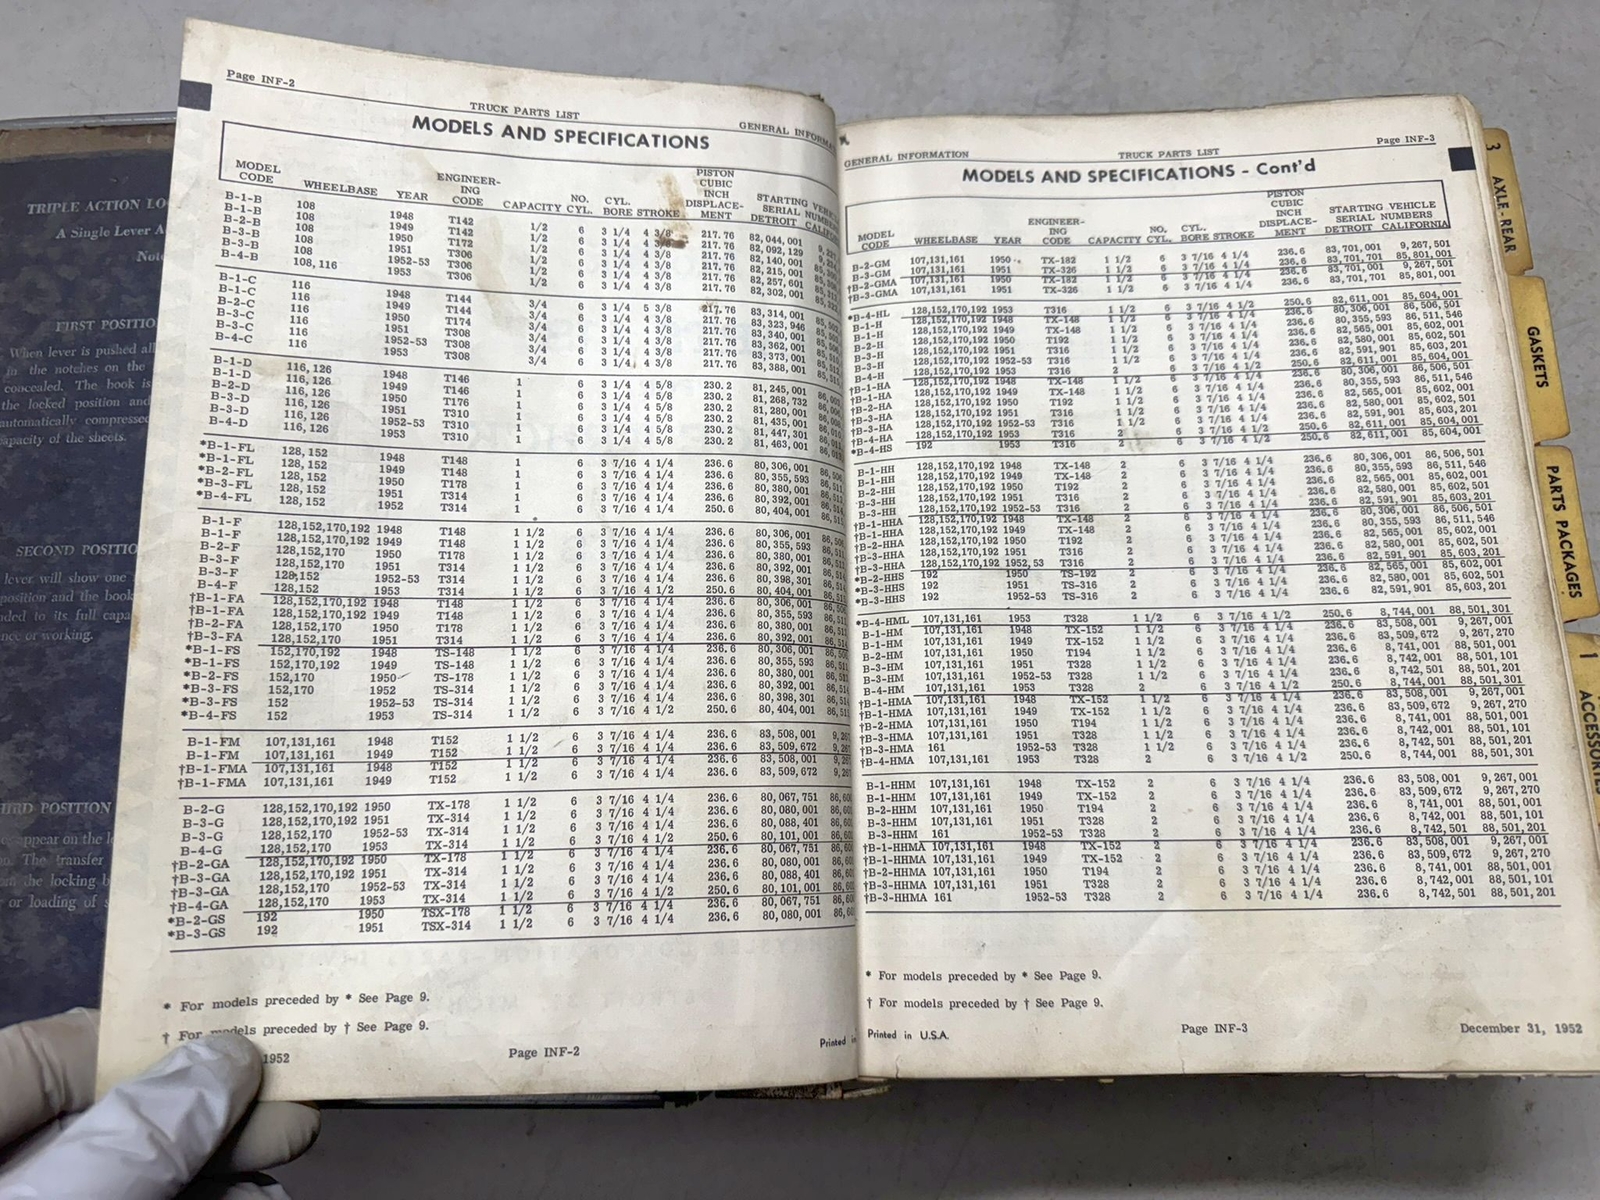 TRIPLE ACTION LO
A Single Lever A
Note
FIRST POSITIO
When lever is pushed all
in the notches on the
concealed. The book is
the locked position and
automatically compressed
apacity of the sheets.
SECOND POSITIO
lever will show one
position and the book
nded to its full capa
nce or working.
HIRD POSITION
appear on the l
The transfer
the locking b
or loading of s
Page INF-2
TRUCK PARTS LIST
GENERAL INFORMA
MODELS AND SPECIFICATIONS
MODEL CODE WHEELBASE YEAR ENGINEER-ING CODE CAPACITY NO. CYL. CYL. BORE STROKE PISTON CUBIC INCH DISPLACE-MENT STARTING VEHIC SERIAL NUMBE DETROIT CALIFO
B-1-B 108 1948 T142 1/2 6 3 1/4 4 3/8 217.76 82,044,001
B-1-B 108 1949 T142 1/2 6 3 1/4 4 3/8 217.76 82,092,129
B-2-B 108 1950 T172 1/2 6 3 1/4 4 3/8 217.76 82,140,001
B-3-B 108 1951 T306 1/2 6 3 1/4 4 3/8 217.76 82,215,001
B-3-B 108 1952-53 T306 1/2 6 3 1/4 4 3/8 217.76 82,257,601
B-4-B 108,116 1953 T306 1/2 6 3 1/4 4 3/8 217.76 82,302,001
B-1-C 116 1948 T144 3/4 6 3 1/4 5 3/8 217.76 83,314,001
B-1-C 116 1949 T144 3/4 6 3 1/4 4 3/8 217.76 83,323,946
B-2-C 116 1950 T174 3/4 6 3 1/4 4 3/8 217.76 83,340,001
B-3-C 116 1951 T308 3/4 6 3 1/4 4 3/8 217.76 83,362,001
B-3-C 116 1952-53 T308 3/4 6 3 1/4 4 3/8 217.76 83,373,001
B-4-C 116 1953 T308 3/4 6 3 1/4 4 3/8 217.76 83,388,001
B-1-D 116,126 1948 T146 1 6 3 1/4 4 5/8 230.2 81,245,001
B-1-D 116,126 1949 T146 1 6 3 1/4 4 5/8 230.2 81,268,732
B-2-D 116,126 1950 T176 1 6 3 1/4 4 5/8 230.2 81,280,001
B-3-D 116,126 1951 T310 1 6 3 1/4 4 5/8 230.2 81,435,001
B-3-D 116,126 1952-53 T310 1 6 3 1/4 4 5/8 230.2 81,447,301
B-4-D 116,126 1953 T310 1 6 3 1/4 4 5/8 230.2 81,463,001
*B-1-FL 128,152 1948 T148 1 6 3 7/16 4 1/4 236.6 80,306,001
*B-1-FL 128,152 1949 T148 1 6 3 7/16 4 1/4 236.6 80,355,593
*B-2-FL 128,152 1950 T178 1 6 3 7/16 4 1/4 236.6 80,380,001
*B-3-FL 128,152 1951 T314 1 6 3 7/16 4 1/4 236.6 80,392,001
*B-4-FL 128,152 1952 T314 1 6 3 7/16 4 1/4 250.6 80,404,001
B-1-F 128,152,170,192 1948 T148 1 1/2 6 3 7/16 4 1/4 236.6 80,306,001
B-1-F 128,152,170,192 1949 T148 1 1/2 6 3 7/16 4 1/4 236.6 80,355,593
B-2-F 128,152,170 1950 T178 1 1/2 6 3 7/16 4 1/4 236.6 80,380,001
B-3-F 128,152,170 1951 T314 1 1/2 6 3 7/16 4 1/4 236.6 80,392,001
B-3-F 128,152 1952-53 T314 1 1/2 6 3 7/16 4 1/4 236.6 80,398,301
B-4-F 128,152 1953 T314 1 1/2 6 3 7/16 4 1/2 250.6 80,404,001
†B-1-FA 128,152,170,192 1948 T148 1 1/2 6 3 7/16 4 1/4 236.6 80,306,001
†B-1-FA 128,152,170,192 1949 T148 1 1/2 6 3 7/16 4 1/4 236.6 80,355,593
†B-2-FA 128,152,170 1950 T178 1 1/2 6 3 7/16 4 1/4 236.6 80,380,001
†B-3-FA 128,152,170 1951 T314 1 1/2 6 3 7/16 4 1/4 236.6 80,392,001
*B-1-FS 152,170,192 1948 TS-148 1 1/2 6 3 7/16 4 1/4 236.6 80,306,001
*B-1-FS 152,170,192 1949 TS-148 1 1/2 6 3 7/16 4 1/4 236.6 80,355,593
*B-2-FS 152,170 1950 TS-178 1 1/2 6 3 7/16 4 1/4 236.6 80,380,001
*B-3-FS 152,170 1952 TS-314 1 1/2 6 3 7/16 4 1/4 236.6 80,392,001
*B-3-FS 152 1952-53 TS-314 1 1/2 6 3 7/16 4 1/4 236.6 80,398,301
*B-4-FS 152 1953 TS-314 1 1/2 6 3 7/16 4 1/4 250.6 80,404,001
B-1-FM 107,131,161 1948 T152 1 1/2 6 3 7/16 4 1/4 236.6 83,508,001
B-1-FM 107,131,161 1949 T152 1 1/2 6 3 7/16 4 1/4 236.6 83,509,672
†B-1-FMA 107,131,161 1948 T152 1 1/2 6 3 7/16 4 1/4 236.6 83,508,001
†B-1-FMA 107,131,161 1949 T152 1 1/2 6 3 7/16 4 1/4 236.6 83,509,672
B-2-G 128,152,170,192 1950 TX-178 1 1/2 6 3 7/16 4 1/4 236.6 80,067,751
B-3-G 128,152,170,192 1951 TX-314 1 1/2 6 3 7/16 4 1/4 236.6 80,080,001
B-3-G 128,152,170 1952-53 TX-314 1 1/2 6 3 7/16 4 1/4 236.6 80,088,401
B-4-G 128,152,170 1953 TX-314 1 1/2 6 3 7/16 4 1/2 250.6 80,101,001
†B-2-GA 128,152,170,192 1950 TX-178 1 1/2 6 3 7/16 4 1/4 236.6 80,067,751
†B-3-GA 128,152,170,192 1951 TX-314 1 1/2 6 3 7/16 4 1/4 236.6 80,080,001
†B-3-GA 128,152,170 1952-53 TX-314 1 1/2 6 3 7/16 4 1/4 236.6 80,088,401
†B-4-GA 128,152,170 1953 TX-314 1 1/2 6 3 7/16 4 1/2 250.6 80,101,001
*B-2-GS 192 1950 TSX-178 1 1/2 6 3 7/16 4 1/4 236.6 80,067,751
*B-3-GS 192 1951 TSX-314 1 1/2 6 3 7/16 4 1/4 236.6 80,080,001
* For models preceded by * See Page 9.
† For models preceded by † See Page 9.
1952
Page INF-2
Printed in
GENERAL INFORMATION
TRUCK PARTS LIST
Page INF-3
MODELS AND SPECIFICATIONS - Cont'd
MODEL CODE WHEELBASE YEAR ENGINEER-ING CODE CAPACITY NO. CYL. CYL. BORE STROKE PISTON CUBIC INCH DISPLACE-MENT STARTING VEHICLE SERIAL NUMBERS DETROIT CALIFORNIA
B-2-GM 107,131,161 1950 TX-182 1 1/2 6 3 7/16 4 1/4 236.6 83,701,001 9,267,501
B-3-GM 107,131,161 1951 TX-326 1 1/2 6 3 7/16 4 1/4 236.6 83,701,701 85,801,001
†B-2-GMA 107,131,161 1950 TX-182 1 1/2 6 3 7/16 4 1/4 236.6 83,701,001 9,267,501
†B-3-GMA 107,131,161 1951 TX-326 1 1/2 6 3 7/16 4 1/4 236.6 83,701,701 85,801,001
*B-4-HL 128,152,170,192 1953 T316 1 1/2 6 3 7/16 4 1/2 250.6 82,611,001 85,604,001
B-1-H 128,152,170,192 1948 TX-148 1 1/2 6 3 7/16 4 1/4 236.6 80,306,001 86,506,501
B-1-H 128,152,170,192 1949 TX-148 1 1/2 6 3 7/16 4 1/4 236.6 80,355,593 86,511,546
B-2-H 128,152,170,192 1950 T192 1 1/2 6 3 7/16 4 1/4 236.6 82,565,001 85,602,001
B-3-H 128,152,170,192 1951 T316 1 1/2 6 3 7/16 4 1/4 236.6 82,580,001 85,602,501
B-3-H 128,152,170,192 1952-53 T316 1 1/2 6 3 7/16 4 1/4 236.6 82,591,901 85,603,201
B-4-H 128,152,170,192 1953 T316 2 6 3 7/16 4 1/2 250.6 82,611,001 85,604,001
†B-1-HA 128,152,170,192 1948 TX-148 1 1/2 6 3 7/16 4 1/4 236.6 80,306,001 86,506,501
†B-1-HA 128,152,170,192 1949 TX-148 1 1/2 6 3 7/16 4 1/4 236.6 80,355,593 86,511,546
†B-2-HA 128,152,170,192 1950 T192 1 1/2 6 3 7/16 4 1/4 236.6 82,565,001 85,602,001
†B-3-HA 128,152,170,192 1951 T316 1 1/2 6 3 7/16 4 1/4 236.6 82,580,001 85,602,501
†B-3-HA 128,152,170,192 1952-53 T316 1 1/2 6 3 7/16 4 1/4 236.6 82,591,901 85,603,201
†B-4-HA 128,152,170,192 1953 T316 2 6 3 7/16 4 1/2 250.6 82,611,001 85,604,001
*B-4-HS 192 1953 T316 2 6 3 7/16 4 1/2 250.6 82,611,001 85,604,001
B-1-HH 128,152,170,192 1948 TX-148 2 6 3 7/16 4 1/4 236.6 80,306,001 86,506,501
B-1-HH 128,152,170,192 1949 TX-148 2 6 3 7/16 4 1/4 236.6 80,355,593 86,511,546
B-2-HH 128,152,170,192 1950 T192 2 6 3 7/16 4 1/4 236.6 82,565,001 85,602,001
B-3-HH 128,152,170,192 1951 T316 2 6 3 7/16 4 1/4 236.6 82,580,001 85,602,501
B-3-HH 128,152,170,192 1952-53 T316 2 6 3 7/16 4 1/4 236.6 82,591,901 85,603,201
†B-1-HHA 128,152,170,192 1948 TX-148 2 6 3 7/16 4 1/4 236.6 80,306,001 86,506,501
†B-1-HHA 128,152,170,192 1949 TX-148 2 6 3 7/16 4 1/4 236.6 80,355,593 86,511,546
†B-2-HHA 128,152,170,192 1950 T192 2 6 3 7/16 4 1/4 236.6 82,565,001 85,602,001
†B-3-HHA 128,152,170,192 1951 T316 2 6 3 7/16 4 1/4 236.6 82,580,001 85,602,501
†B-3-HHA 128,152,170,192 1952,53 T316 2 6 3 7/16 4 1/4 236.6 82,591,901 85,603,201
*B-2-HHS 192 1950 TS-192 2 6 3 7/16 4 1/4 236.6 82,565,001 85,602,001
*B-3-HHS 192 1951 TS-316 2 6 3 7/16 4 1/4 236.6 82,580,001 85,602,501
*B-3-HHS 192 1952-53 TS-316 2 6 3 7/16 4 1/4 236.6 82,591,901 85,603,201
*B-4-HML 107,131,161 1953 T328 1 1/2 6 3 7/16 4 1/2 250.6 8,744,001 88,501,301
B-1-HM 107,131,161 1948 TX-152 1 1/2 6 3 7/16 4 1/4 236.6 83,508,001 9,267,001
B-1-HM 107,131,161 1949 TX-152 1 1/2 6 3 7/16 4 1/4 236.6 83,509,672 9,267,270
B-2-HM 107,131,161 1950 T194 1 1/2 6 3 7/16 4 1/4 236.6 8,741,001 88,501,001
B-3-HM 107,131,161 1951 T328 1 1/2 6 3 7/16 4 1/4 236.6 8,742,001 88,501,101
B-3-HM 107,131,161 1952-53 T328 1 1/2 6 3 7/16 4 1/4 236.6 8,742,501 88,501,201
B-4-HM 107,131,161 1953 T328 2 6 3 7/16 4 1/2 250.6 8,744,001 88,501,301
†B-1-HMA 107,131,161 1948 TX-152 1 1/2 6 3 7/16 4 1/4 236.6 83,508,001 9,267,001
†B-1-HMA 107,131,161 1949 TX-152 1 1/2 6 3 7/16 4 1/4 236.6 83,509,672 9,267,270
†B-2-HMA 107,131,161 1950 T194 1 1/2 6 3 7/16 4 1/4 236.6 8,741,001 88,501,001
†B-3-HMA 107,131,161 1951 T328 1 1/2 6 3 7/16 4 1/4 236.6 8,742,001 88,501,101
†B-3-HMA 161 1952-53 T328 1 1/2 6 3 7/16 4 1/4 236.6 8,742,501 88,501,201
†B-4-HMA 107,131,161 1953 T328 2 6 3 7/16 4 1/2 250.6 8,744,001 88,501,301
B-1-HHM 107,131,161 1948 TX-152 2 6 3 7/16 4 1/4 236.6 83,508,001 9,267,001
B-1-HHM 107,131,161 1949 TX-152 2 6 3 7/16 4 1/4 236.6 83,509,672 9,267,270
B-2-HHM 107,131,161 1950 T194 2 6 3 7/16 4 1/4 236.6 8,741,001 88,501,001
B-3-HHM 107,131,161 1951 T328 2 6 3 7/16 4 1/4 236.6 8,742,001 88,501,101
B-3-HHM 161 1952-53 T328 2 6 3 7/16 4 1/4 236.6 8,742,501 88,501,201
†B-1-HHMA 107,131,161 1948 TX-152 2 6 3 7/16 4 1/4 236.6 83,508,001 9,267,001
†B-1-HHMA 107,131,161 1949 TX-152 2 6 3 7/16 4 1/4 236.6 83,509,672 9,267,270
†B-2-HHMA 107,131,161 1950 T194 2 6 3 7/16 4 1/4 236.6 8,741,001 88,501,001
†B-3-HHMA 107,131,161 1951 T328 2 6 3 7/16 4 1/4 236.6 8,742,001 88,501,101
†B-3-HHMA 161 1952-53 T328 2 6 3 7/16 4 1/4 236.6 8,742,501 88,501,201
* For models preceded by * See Page 9.
† For models preceded by † See Page 9.
Printed in U.S.A.
Page INF-3
December 31, 1952
3 AXLE-REAR
GASKETS
PARTS PACKAGES
1 ACCESSORIES